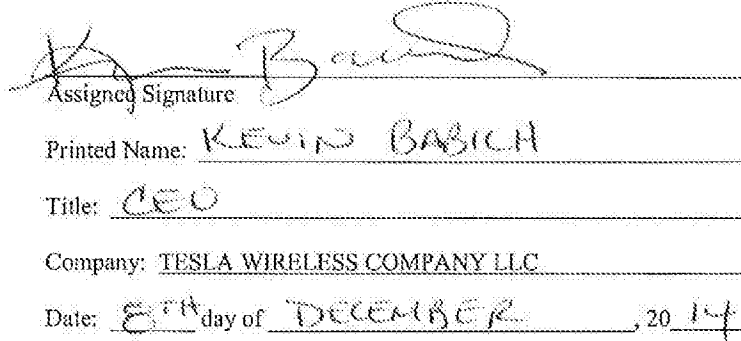 Assigned Signature
Printed Name: KEVIN BABICH
Title: CEO
Company: TESLA WIRELESS COMPANY LLC
Date: 8TH day of DECEMBER, 20 14